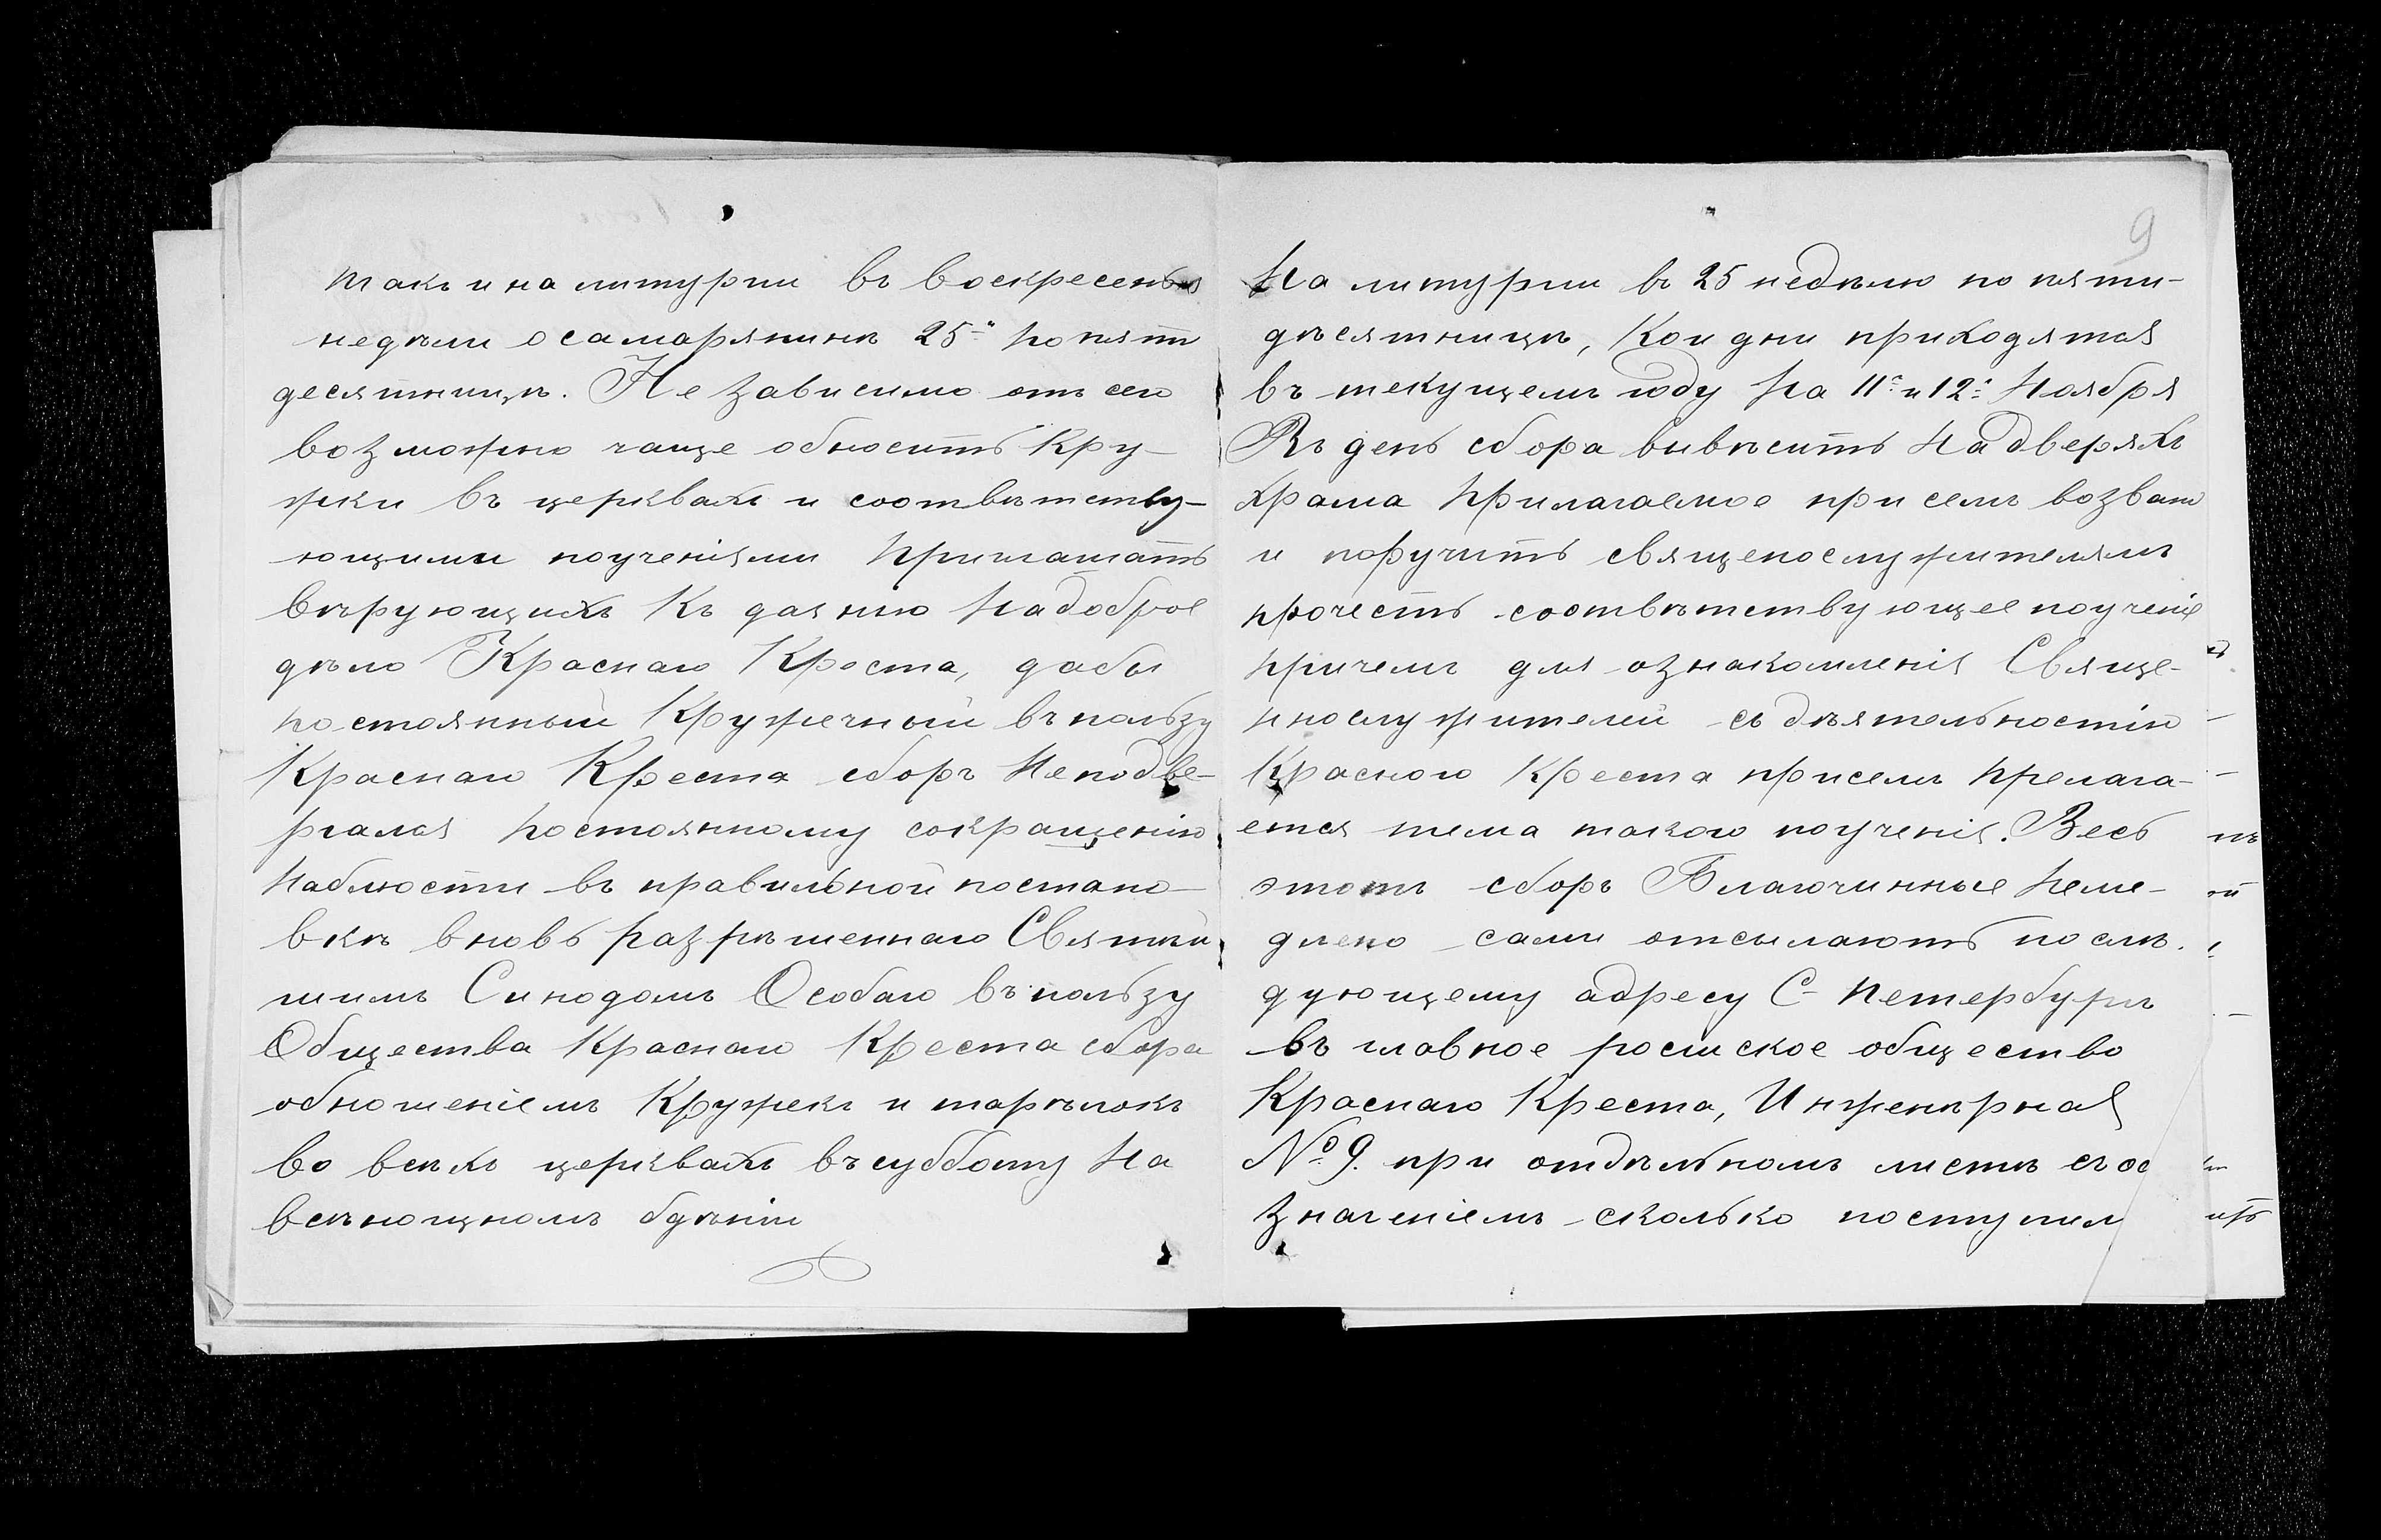 такъ и на литургіи въ воскресенья
недѣли о самарянинѣ 25й по пяти
десятницѣ. Не зависимо отъ сего
возможно чаще обносить кру-
жки въ церквахъ и соотвѣтству-
ющими поученіями приглашать
вѣрующихъ къ даянію на доброе
дѣло Краснаго Креста, дабы
постоянный кружечный въ пользу
Краснаго Креста сборъ не подве-
ргался постоянному сокращенію
наблюсти въ правильной постано-
вкѣ вновь разрѣшеннаго Святѣй
шимъ Синодомъ Особаго въ пользу
Общества Краснаго Креста сбора
обношеніемъ кружекъ и тарѣлокъ
во всѣхъ церквахъ въ субботу на
всѣнощномъ бдѣніи
9
На литургіи въ 25 недѣлю по пяти-
дѣсятницѣ, кои дни приходятся
въ текущемъ году на 11е и 12е Ноября
Въ день сбора вывѣсить на дверяхъ
храма прилагаемое при семъ возван
и поручить священослужителямъ
прочесть соотвѣтствующее поученіе
причемъ для ознакомленія Свяще-
ннослужителей съ дѣятельностію
Красного Креста при семъ прелага-
ется тема такого поученія. Весь
этотъ сборъ Благочинные неме-
длено сами отсылаютъ по слѣ.
дующему адресу С-Петербургъ
въ главное россиское общество
Краснаго Креста, Инженѣрная
№ 9. при отдѣльномъ листѣ съ об
значеніемъ сколько поступил